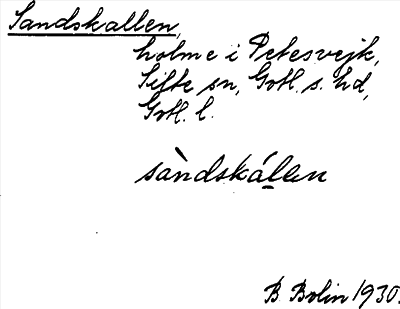 Sandskallen,
holme i Petesvejk,
Silte sn, Gotl. s. hd,
Gotl. l.
sàndskálen
B Bolin 1930.